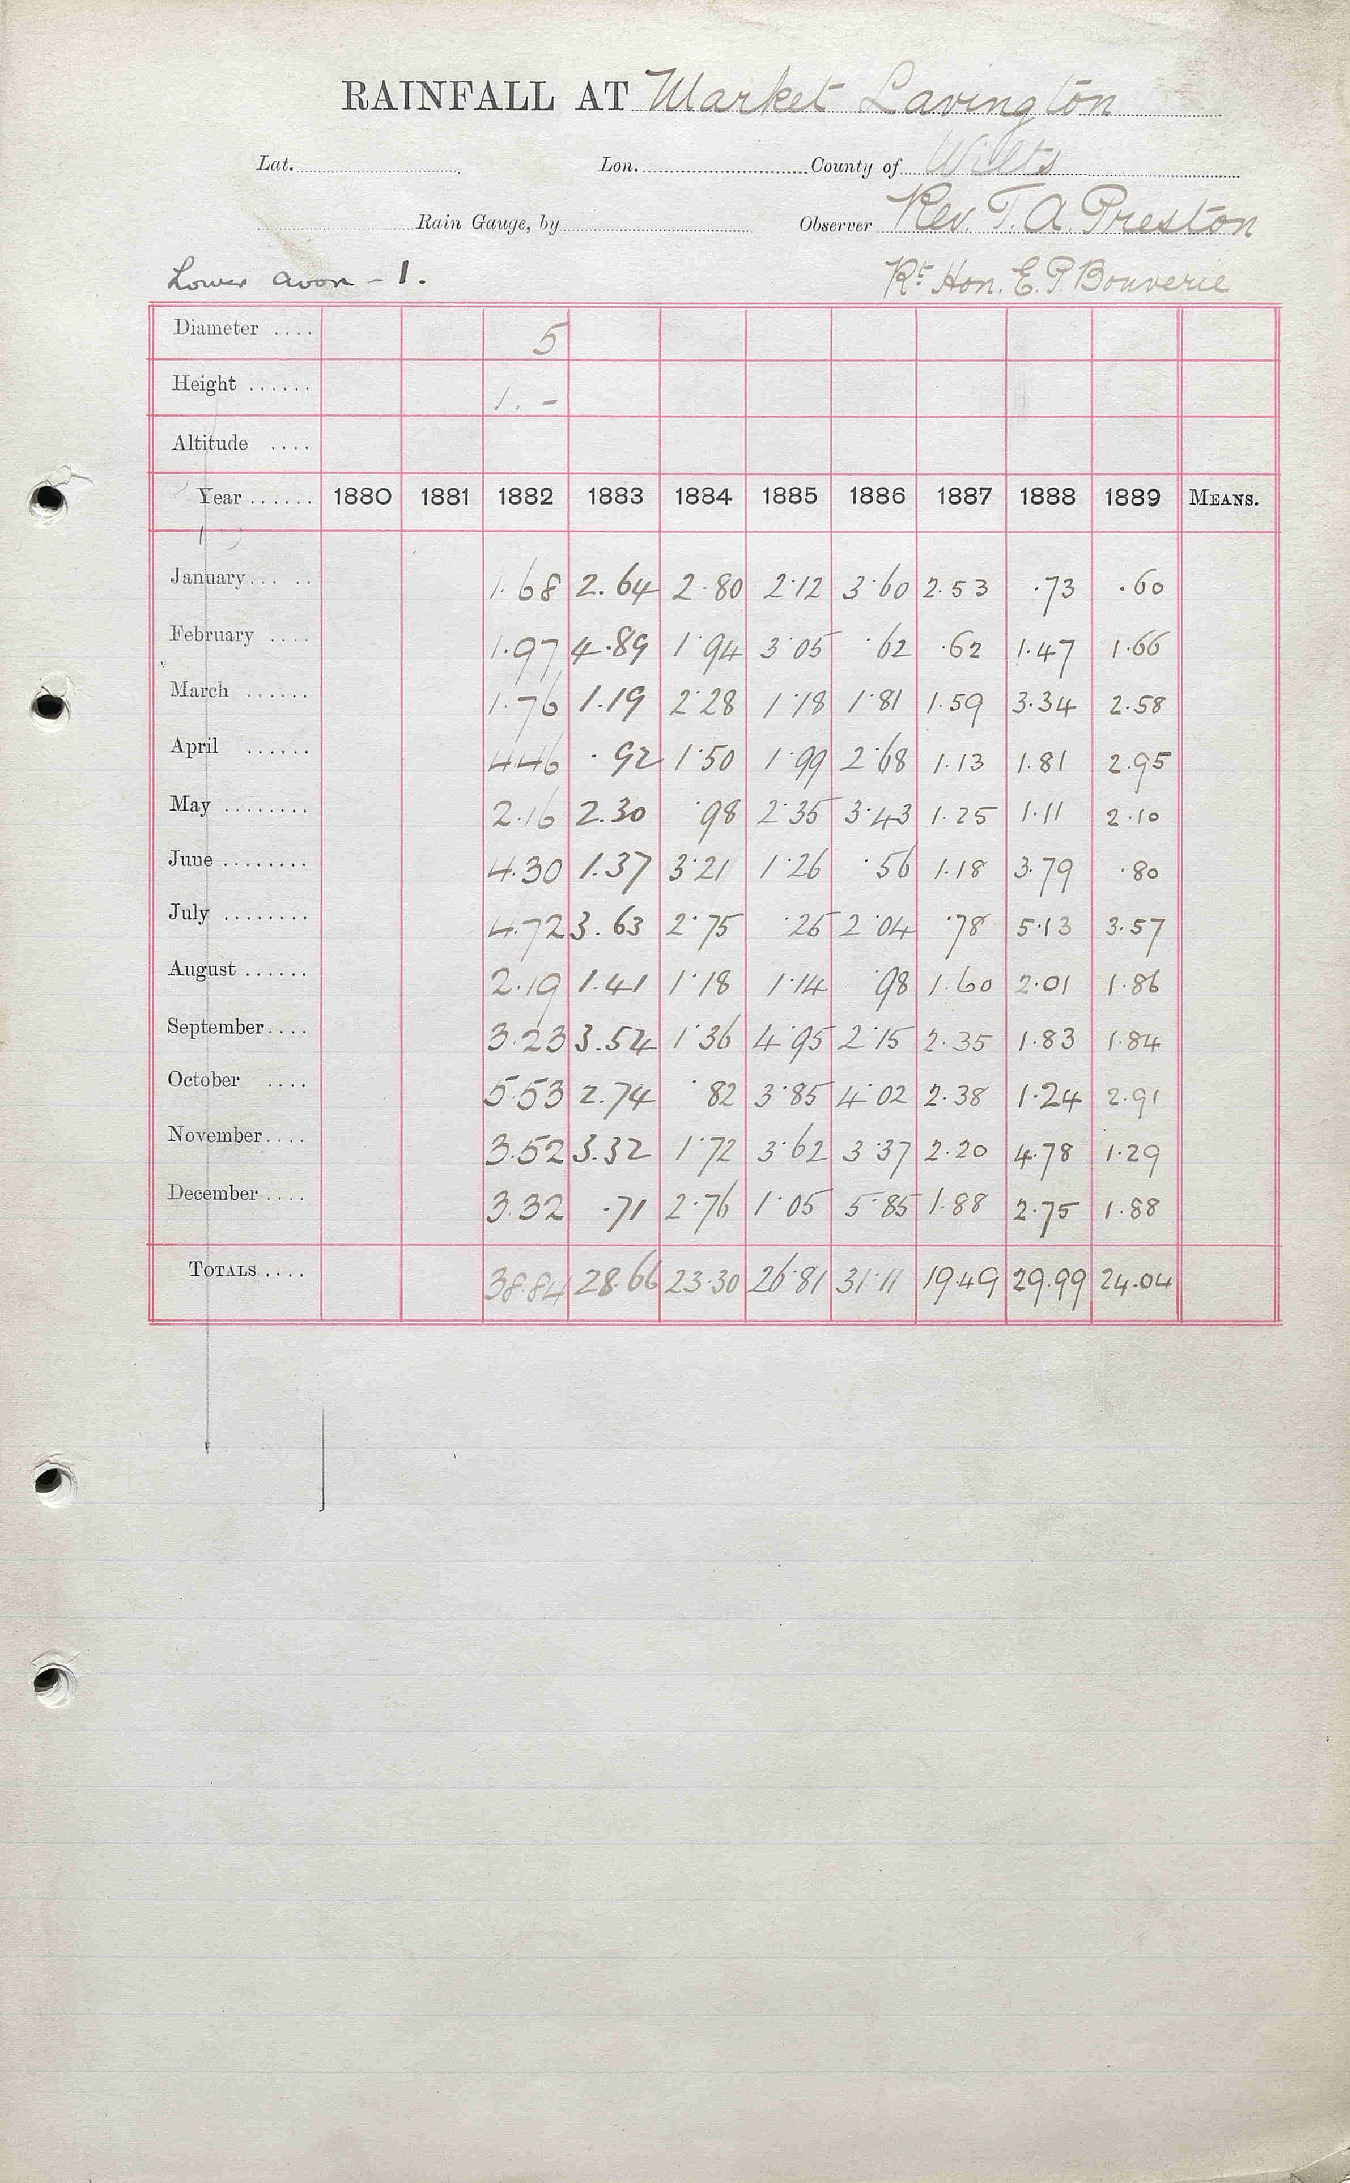 RAINFALL AT Market Lavington
Lat. Lon. County of Wilts
Rain Gauge, by Observer Rev. T. A. Preston
Lower Avon - 1. Rt Hon. E. P. Bouverie
Diameter .... 5
Height ...... 1. -
Altitude ....
Year ...... 1880 1881 1882 1883 1884 1885 1886 1887 1888 1889 MEANS.
January ..... 1.68 2.64 2.80 2.12 3.60 2.53 .73 .60
February .... 1.97 4.89 1.94 3.05 .62 .62 1.47 1.66
March ...... 1.76 1.19 2.28 1.18 1.81 1.59 3.34 2.58
April ...... 4.46 .92 1.50 1.99 2.68 1.13 1.81 2.95
May ........ 2.16 2.30 .98 2.35 3.43 1.25 1.11 2.10
June ........ 4.30 1.37 3.21 1.26 .56 1.18 3.79 .80
July ........ 4.72 3.63 2.75 .25 2.04 .78 5.13 3.57
August ...... 2.19 1.41 1.18 1.14 .98 1.60 2.01 1.86
September.... 3.23 3.54 1.36 4.95 2.15 2.35 1.83 1.84
October .... 5.53 2.74 .82 3.85 4.02 2.38 1.24 2.91
November.... 3.52 3.32 1.72 3.62 3.37 2.20 4.78 1.29
December .... 3.32 .71 2.76 1.05 5.85 1.88 2.75 1.88
TOTALS .... 38.84 28.66 23.30 26.81 31.11 19.49 29.99 24.04